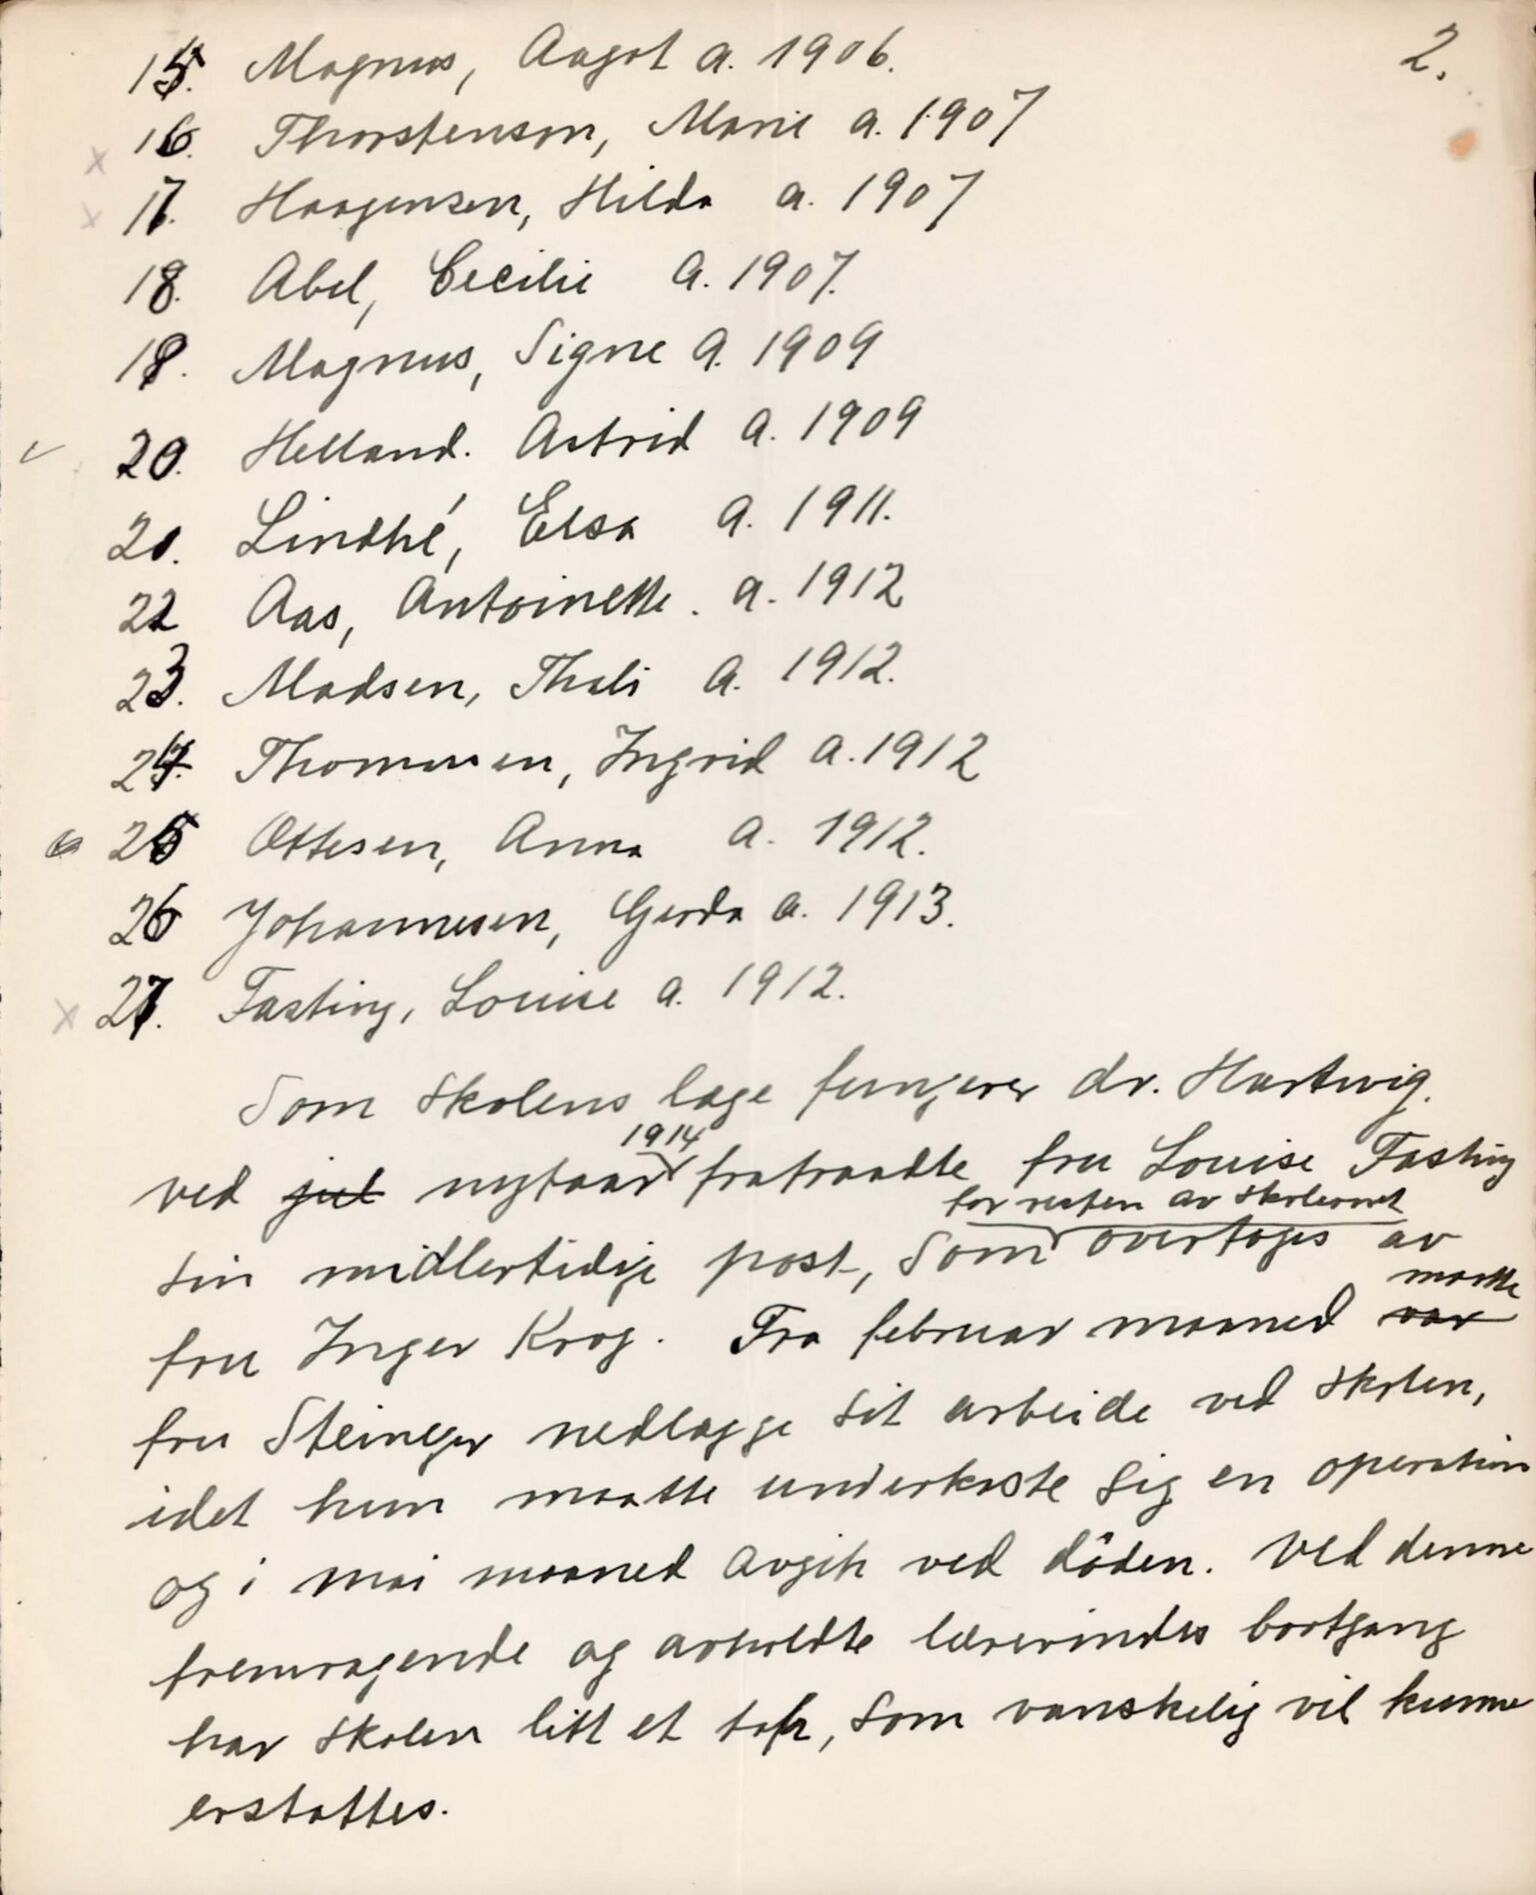 2.
15. Magnus, Aagot a. 1906.
x 16. Thorstenson, Marie a. 1907
x 17. Haagensen, Hilda a. 1907
18. Abel, Cecilie a. 1907.
18. Magnus, Signe a. 1909
20. Helland. Astrid a. 1909
20. Lindhé, Elsa a. 1911.
22 Aas, Antoinette. a. 1912
23. Madsen, Thali a. 1912.
24. Thommesen, Ingrid a. 1912
25 Ottesen, Anna a. 1912.
26 Johannesen, Gerda a. 1913.
x 27. Fasting, Louise a. 1912.
Som skolens læge fungerer dr. Hartwig.
1914
ved jul nytaar fratraadte fru Louise Fasting
for resten av skoleaaret
sin midlertidige post, som overtoges av
maatte
fru Inger Krog. Fra februar maaned var
fru Steineger nedlægge sit arbeide ved skolen,
idet hun maatte underkaste sig en operation
og i mai maaned avgik ved döden. Ved denne
fremragende og avholdte lærerindes bortgang
har skolen litt et tap, som vanskelig vil kunne
erstattes.